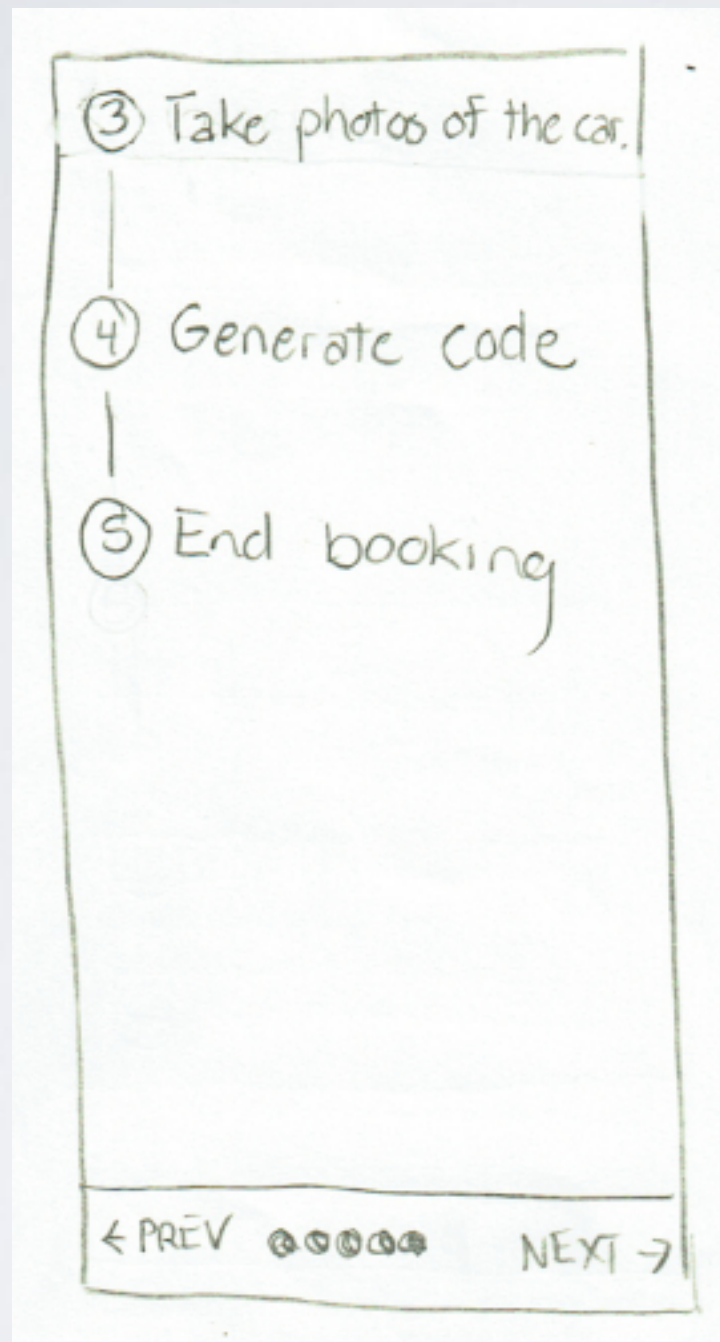 3 Take photos of the car.
4 Generate code
5 End booking
← PREV NEXT →